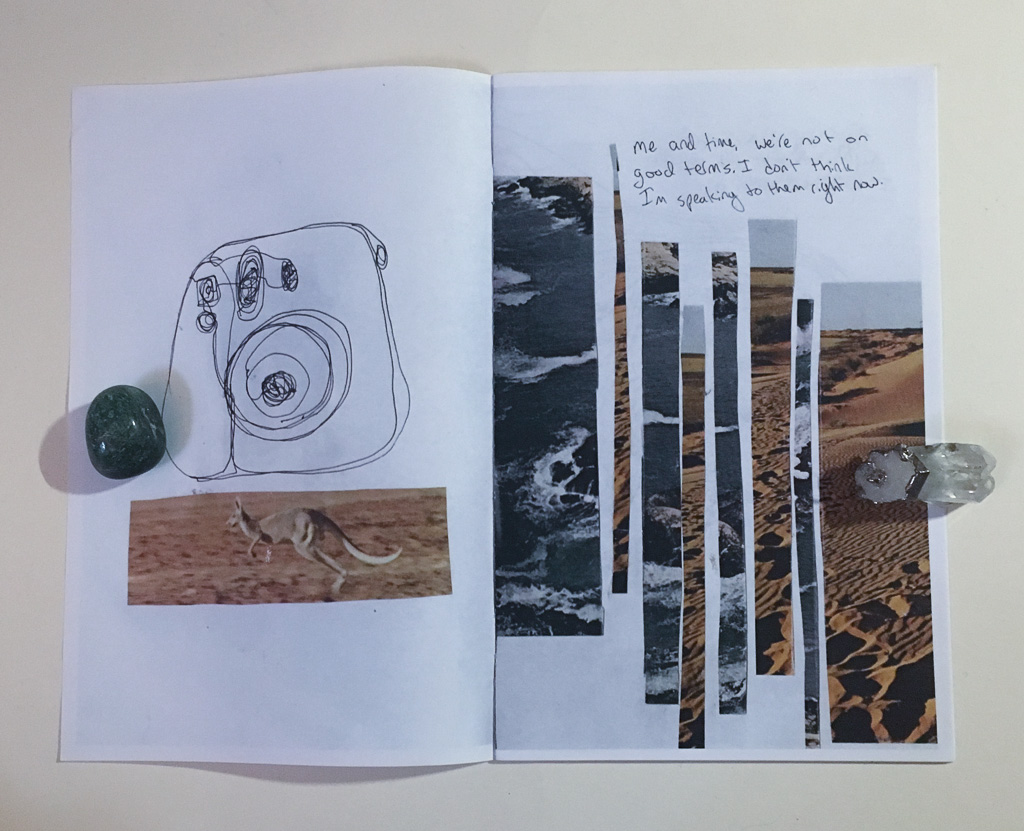 me and time, we're not on
good terms. I don't think
I'm speaking to them right now.